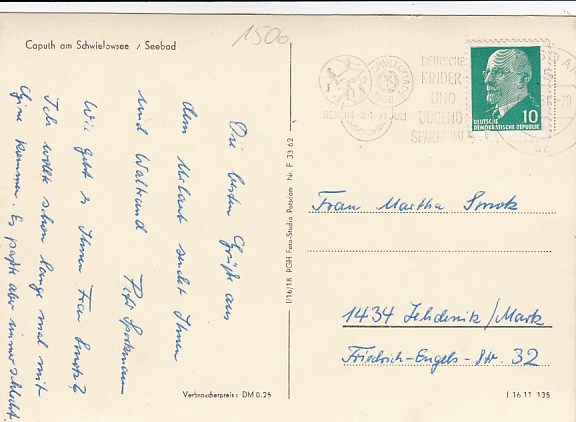 Caputh am Schwielowsee / Seebad
1506
Die besten Grüße aus
dem Urlaub sendet Ihnen
und Waltraud
Wie geht es Ihnen Frau
Ich wollte schon lange mal mit
kommen. Es paßte aber immer schlecht.
Verbraucherpreis: DM 0.25
I/16/18 PGH Foto-Studio Potsdam Nr. F 33 62
SPARTAKIADE
1966
BERLIN 24.-31. JULI
DEUTSCHE
KINDER-
UND
JUGEND
DEUTSCHE
DEMOKRATISCHE REPUBLIK
10
Frau Martha
1434 Zehdenik/Mark
Friedrich-Engels-Str. 32
I 16 11 135